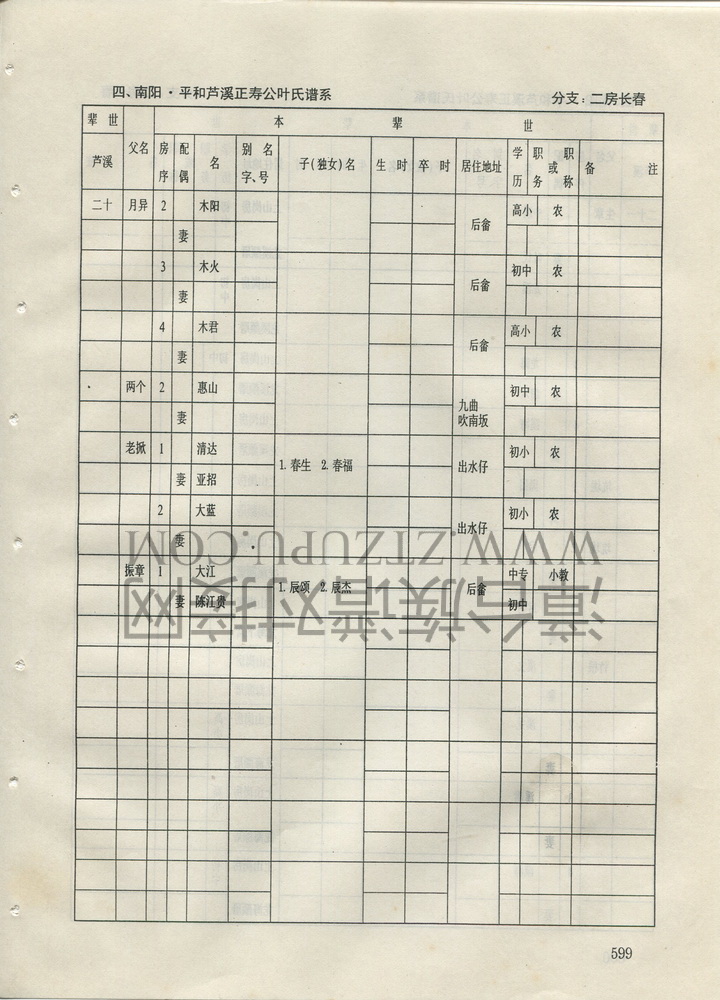 四、南阳·平和芦溪正寿公叶氏谱系 分支：二房长春
辈世 本辈世
芦溪 父名 房序 配偶 名 别名字、号 子(独女)名 生时 卒时 居住地址 学历 职务或职称 备注
二十 月异 2 木阳 后畲 高小 农
妻
3 木火 后畲 初中 农
妻
4 木君 后畲 高小 农
妻
两个 2 惠山 九曲吹南坂 初中 农
妻
老掀 1 清达 1.春生 2.春福 出水仔 初小 农
妻 亚招
2 大蓝 出水仔 初小 农
妻
振章 1 大江 1.辰颂 2.辰杰 后畲 中专 小教
妻 陈江贵 初中
漳台族谱对接网
WWW.ZTZUPU.COM
599